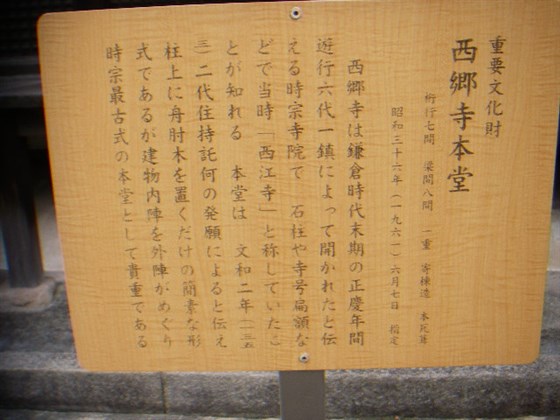 重要文化財
西郷寺本堂
桁行七間 梁間八間 一重 寄棟造 本瓦葺
昭和三十六年(一九六一)六月七日 指定
西郷寺は鎌倉時代末期の正慶年間
遊行六代一鎮によって開かれたと伝
える時宗寺院で 石柱や寺号扁額な
どで当時「西江寺」と称していたこ
とが知れる 本堂は 文和二年(一三五
三)二代住持託何の発願によると伝え
柱上に舟肘木を置くだけの簡素な形
式であるが建物内陣を外陣がめぐり
時宗最古式の本堂として貴重である